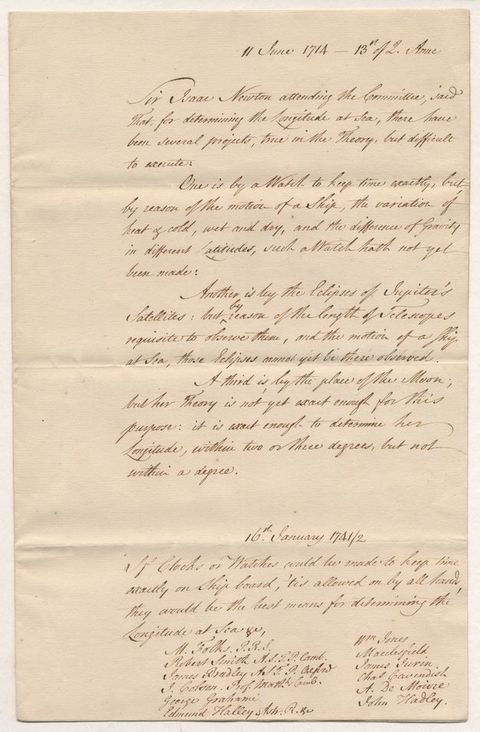 11 June 1714 — 13th of Q. Anne
Sir Isaac Newton attending the Committee, said
that, for determining the Longitude at Sea, there have
been several projects, true in the Theory, but difficult
to execute:
One is by a Watch to keep time exactly, but
by reason of the motion of a Ship, the variation of
heat & cold, wet and dry, and the difference of Gravity
in different Latitudes, such a Watch hath not yet
been made:
Another is by the Eclipses of Jupiter's
Satellites: but by reason of the length of Telescopes
requisite to observe them, and the motion of a Ship
at Sea, those Eclipses cannot yet be there observed.
A third is by the place of the Moon;
but her Theory is not yet exact enough for this
purpose: it is exact enough to determine her
Longitude, within two or three degrees, but not
within a degree.
16th January 1741/2
If Clocks or Watches could be made to keep time
exactly on Ship board, 'tis allowed on by all hands,
they would be the best means for determining the
Longitude at Sea &c,
M. Folks. P.R.S.
Robert Smith A.S.P.P. Camb.
James Bradley A.S.P.P. Oxford
J. Colson. Prof. Math. Camb.
George Graham
Edmund Halley, Astr. R. &c
Wm Jones
Macclesfield
James Jurin
Chas Cavendish
A. De Moivre
John Hadley.